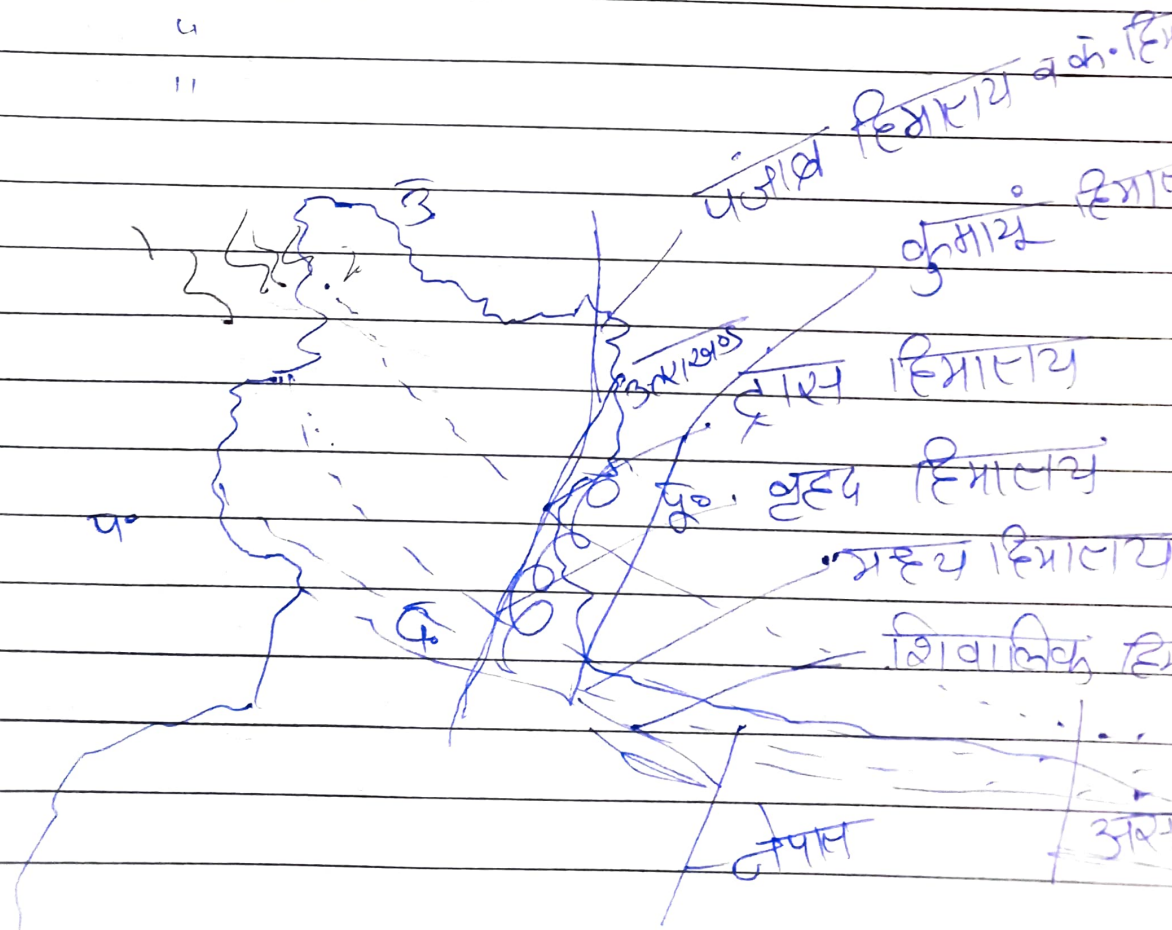 "
"
पंजाब हिमालय व के. हि
उ
कुमायूं हिमा
उत्तराखण्ड
ट्रांस हिमालय
पू. वृहद हिमालय
प०
मध्य हिमालय
द.
शिवालिक हि
नेपाल